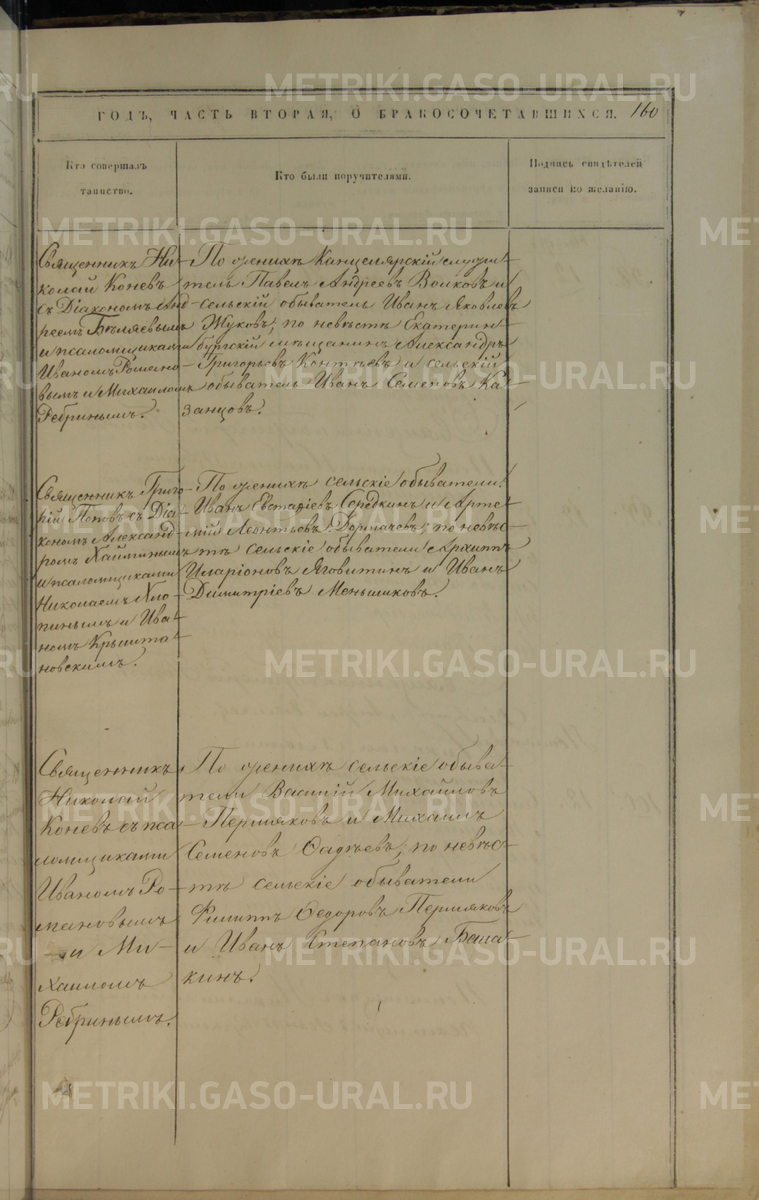 ГОДЪ, ЧАСТЬ ВТОРАЯ, О БРАКОСОЧЕТАВШИХСЯ. 160
Кто совершалъ
таинство.
Кто были поручителями.
Подпись свидѣтелей
записи по желанію.
Священникъ Ни-
колай Коневъ
съ Діакономъ Анд-
реемъ Бѣляевымъ
и псаломщиками
Иваномъ Романо-
вымъ и Михаиломъ
Ребринымъ.
По женихѣ Канцелярскій служи-
тель Павелъ Андреевъ Волковъ и
сельскій обыватель Иванъ Яковлевъ
Жуковъ; по невѣстѣ Екатерин-
бургскій мѣщанинъ Александръ
Григорьевъ Контѣевъ и сельскій
обыватель Иванъ Семеновъ Ка-
занцовъ.
Священникъ Григо-
рій Поповъ съ Діа-
кономъ Александ-
ромъ Хайминымъ
и псаломщиками
Николаемъ Хло-
пинымъ и Ива-
номъ Крышта-
новскимъ.
По женихѣ сельскіе обыватели:
Иванъ Евстафіевъ Середкинъ и Арте-
мій Леонтьевъ Дормачевъ; по невѣс-
тѣ сельскіе обыватели Архиппъ
Иларіоновъ Яговитинъ и Иванъ
Димитріевъ Меньшиковъ.
Священникъ
Николай
Коневъ съ пса-
ломщиками
Иваномъ Ро-
мановымъ
и Ми-
хаиломъ
Ребринымъ.
По женихѣ сельскіе обыва-
тели Василій Михайловъ
Пермяковъ и Михаилъ
Семеновъ Фадѣевъ; по невѣс-
тѣ сельскіе обыватели
Филиппъ Ѳедоровъ Пермяковъ
и Иванъ Степановъ Беша-
кинъ.
METRIKI.GASO-URAL.RU